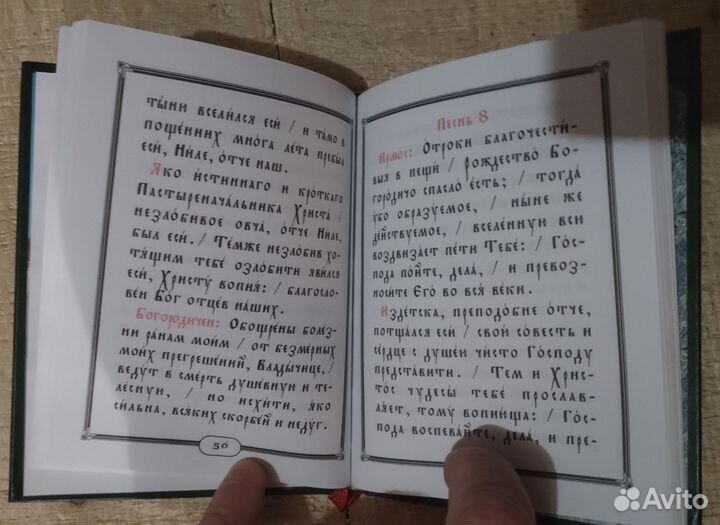 ты́ни всели́лся еси́ / и та́мо в
поще́нних мно́га ле́та пребы́л
еси́, Ни́ле, о́тче наш.
Я́ко и́стиннаго и кро́ткаго
Пастыренача́льника Христа́ /
незло́бивое овча́, о́тче Ни́ле,
был еси́. / Те́мже незло́бив хо-
тя́щим тебе́ озло́бити яви́лся
еси́, Христу́ вопия́: / благосло-
ве́н Бог отце́в на́ших.
Богоро́дичен: Обощре́ны боле́з-
ни ра́нам мои́м / от безме́рных
мои́х прегреше́ний, Влады́чице, /
веду́т в смерть душе́вную и те-
ле́сную, / но исхи́ти, я́ко
си́льна, вся́ких скорбе́й и неду́г.
56
Песнь 8
Ирмо́с: О́троки благочести́-
выя в пещи́ / рождество́ Бо-
городи́чо спасло́ е́сть; / тогда́
у́бо образу́емое, / ны́не же
де́йствуемое, / вселе́нную всю
воздвиза́ет пе́ти Тебе́: / Го́с-
пода по́йте, дела́, / и превоз-
носи́те Его́ во вся ве́ки.
Изде́тска, преподо́бне о́тче,
потща́лся еси́ / свою́ со́весть и
се́рдце с душе́й чи́сто Го́споду
предста́вити. / Тем и Хрис-
то́с чудесы́ тебе́ прославля́-
яет, тому́ вопию́ща: / Го́с-
пода воспева́йте, дела́, и пре-
Avito